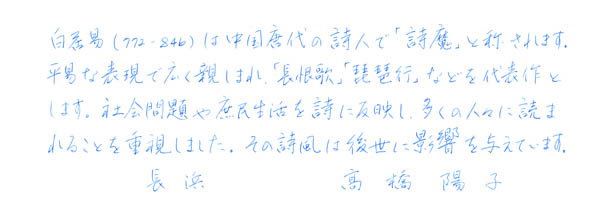 白居易(772-846)は中国唐代の詩人で「詩魔」と称されます.
平易な表現で広く親しまれ、「長恨歌」「琵琶行」などを代表作と
します。社会問題や庶民生活を詩に反映し、多くの人々に読ま
れることを重視しました。その詩風は後世に影響を与えています.
長浜 高橋陽子